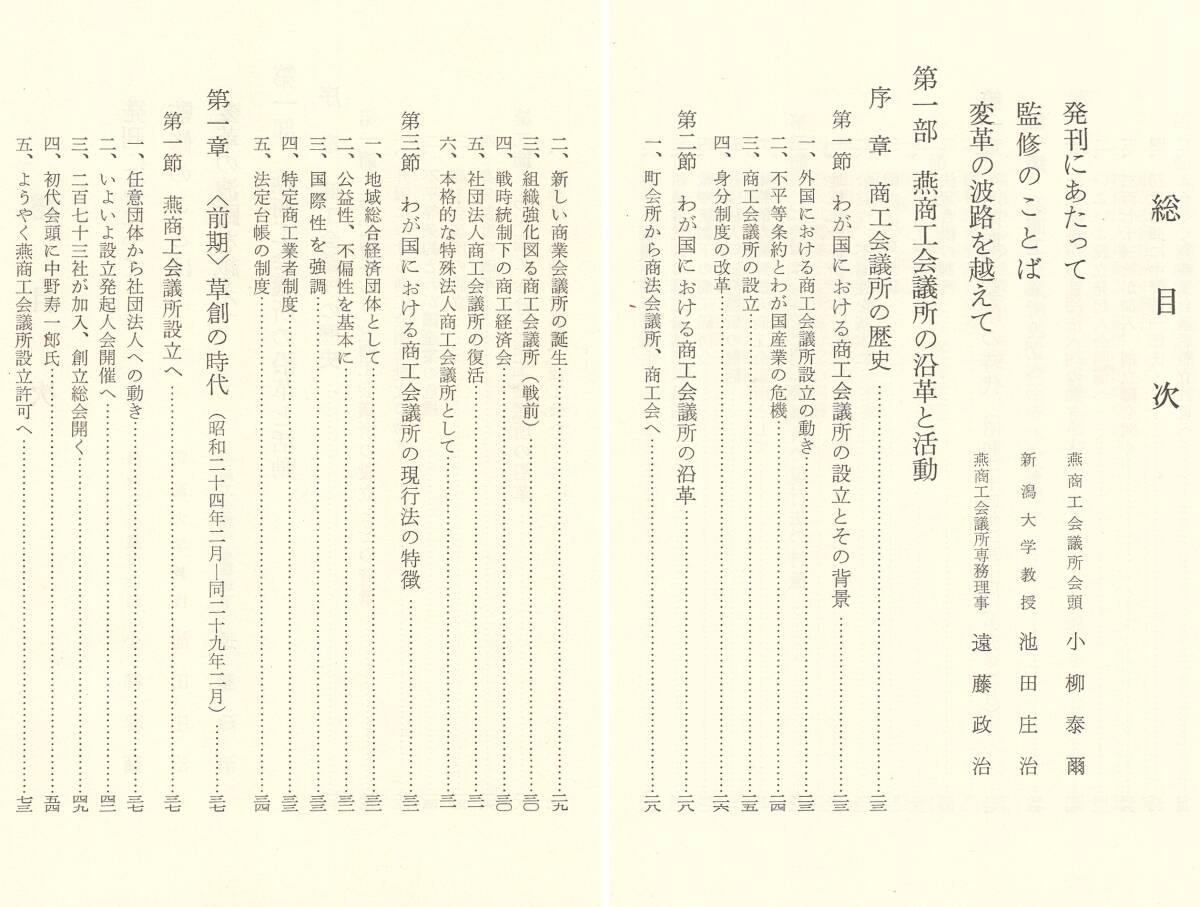 総目次
発刊にあたって 燕商工会議所会頭 小柳泰爾
監修のことば 新潟大学教授 池田庄治
変革の波路を越えて 燕商工会議所専務理事 遠藤政治
第一部 燕商工会議所の沿革と活動
序章 商工会議所の歴史……二三
第一節 わが国における商工会議所の設立とその背景……二三
一、外国における商工会議所設立の動き……二三
二、不平等条約とわが国産業の危機……二四
三、商工会議所の設立……二五
四、身分制度の改革……二六
第二節 わが国における商工会議所の沿革……二八
一、町会所から商法会議所、商工会へ……二八
二、新しい商業会議所の誕生……二九
三、組織強化図る商工会議所（戦前）……三〇
四、戦時統制下の商工経済会……三〇
五、社団法人商工会議所の復活……三一
六、本格的な特殊法人商工会議所として……三一
第三節 わが国における商工会議所の現行法の特徴……三二
一、地域総合経済団体として……三二
二、公益性、不偏性を基本に……三二
三、国際性を強調……三三
四、特定商工業者制度……三三
五、法定台帳の制度……三四
第一章 〈前期〉草創の時代（昭和二十四年二月―同二十九年二月）……三七
第一節 燕商工会議所設立へ……三七
一、任意団体から社団法人への動き……三七
二、いよいよ設立発起人会開催へ……四二
三、二百七十三社が加入、創立総会開く……四九
四、初代会頭に中野寿一郎氏……五四
五、ようやく燕商工会議所設立許可へ……七三